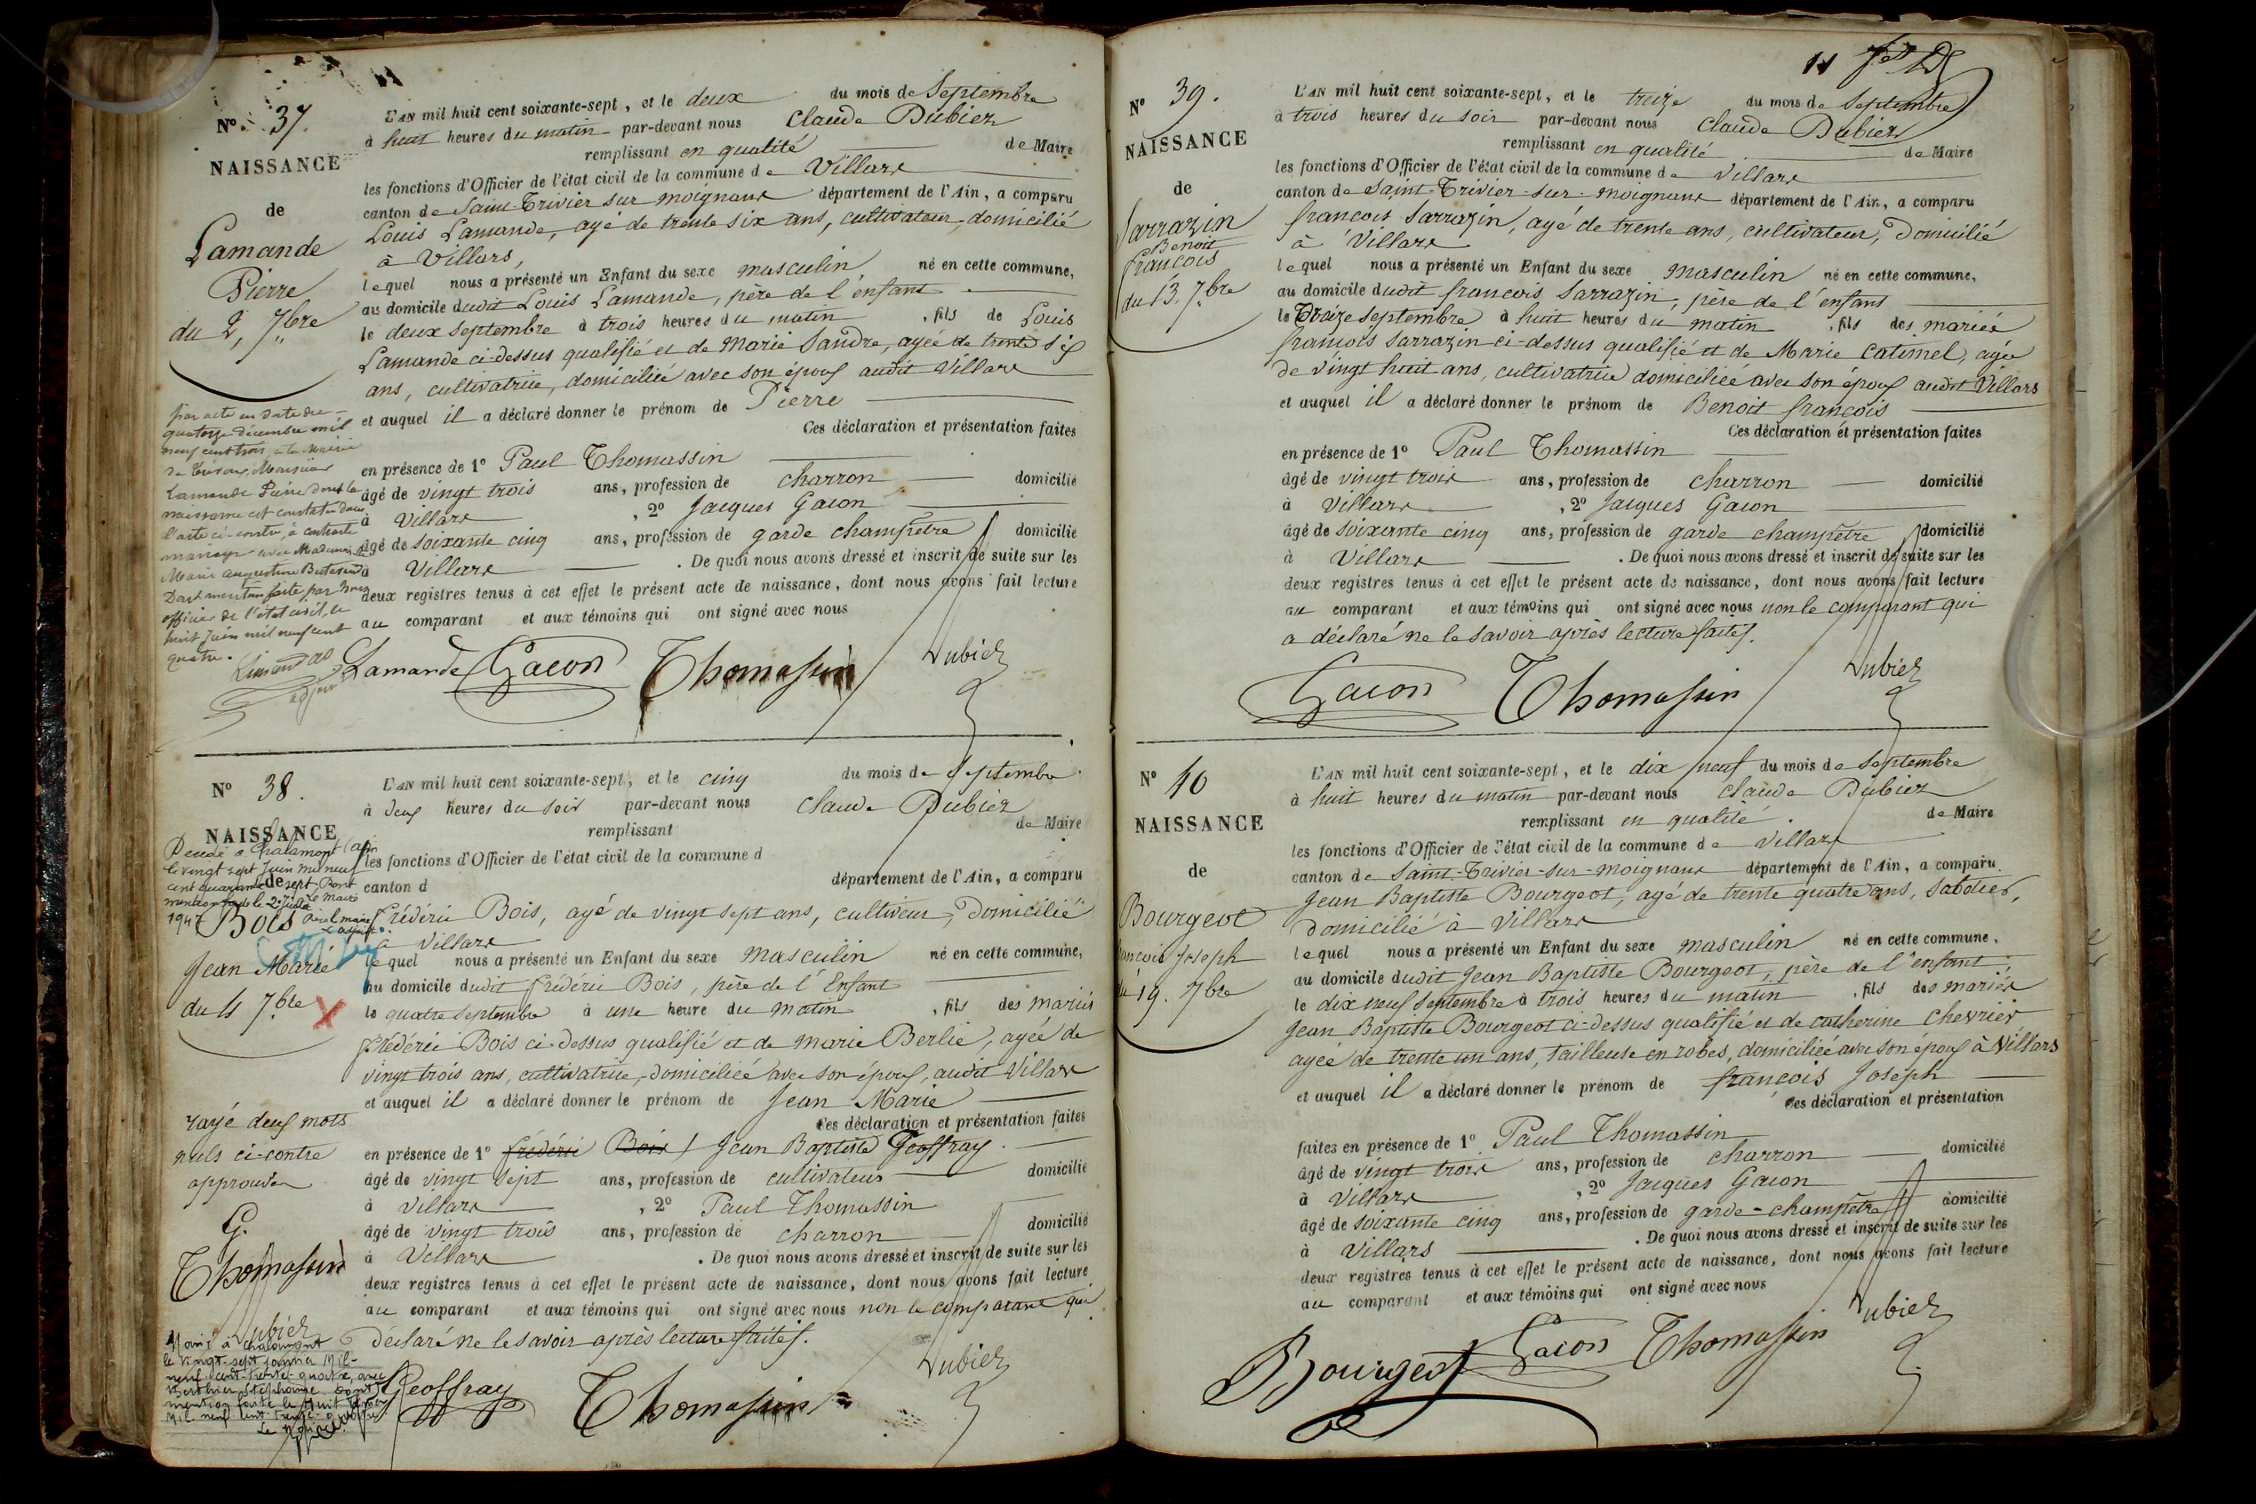 Nº 37.
NAISSANCE
de
Lamande
Pierre
du 2, 7bre
par acte en date du
quatorze décembre mil
neuf cent trois, à la Mairie
de Trévoux, Monsieur
Lamande Pierre dont la
naissance est constatée dans
l'acte ci-contre, a contracté
mariage avec Mademoiselle
Marie Augustine
Dont mention faite par Nous
officier de l'état civil, le
huit Juin mil neuf cent
quatre.
L'AN mil huit cent soixante-sept, et le deux du mois de Septembre
à huit heures du matin par-devant nous Claude Dubiez
remplissant en qualité de Maire
les fonctions d'Officier de l'état civil de la commune de Villars
canton de Saint-Trivier sur moignans département de l'Ain, a comparu
Louis Lamande, agé de trente six ans, cultivateur, domicilié
à Villars,
lequel nous a présenté un Enfant du sexe masculin, né en cette commune,
au domicile dudit Louis Lamande, père de l'enfant
le deux Septembre à trois heures du matin, fils de Louis
Lamande ci-dessus qualifié et de Marie Sandre, agée de trente six
ans, cultivatrice, domiciliée avec son époux audit Villars
et auquel il a déclaré donner le prénom de Pierre
Ces déclaration et présentation faites
en présence de 1º Paul Thomassin
âgé de vingt trois ans, profession de charron domicilié
à Villars, 2º Jacques Gacon
âgé de soixante cinq ans, profession de garde champêtre domicilié
à Villars. De quoi nous avons dressé et inscrit de suite sur les
deux registres tenus à cet effet le présent acte de naissance, dont nous avons fait lecture
au comparant et aux témoins qui ont signé avec nous
Lamande Gacon Thomassin Dubiez
Nº 38.
NAISSANCE
de
Décédé à Chalamont (Ain)
le vingt sept Juin mil neuf
cent quarante sept. Dont
mention faite le 2 Juillet
1947 Le Maire
Bois
Jean Marie
du 4 7bre X
rayé deux mots
nuls ci-contre
approuvés
G.
Thomassin
Dubiez
Marié à Chalamont
le vingt-sept janvier Mil-
neuf-cent-trente-quatre, avec
Berthier Stéphanie Dont
mention faite le huit février
Mil neuf cent trente-quatre
Le Maire
L'AN mil huit cent soixante-sept, et le cinq du mois de Septembre
à deux heures du soir par-devant nous Claude Dubiez
remplissant de Maire
les fonctions d'Officier de l'état civil de la commune d
canton d département de l'Ain, a comparu
Frédéric Bois, agé de vingt sept ans, cultiveur, domicilié
à Villars
lequel nous a présenté un Enfant du sexe masculin né en cette commune,
au domicile dudit frédéric Bois, père de l'Enfant
le quatre Septembre à une heure du matin, fils des mariés
Frédéric Bois ci-dessus qualifié et de marie Berlie, agée de
vingt trois ans, cultivatrice, domiciliée avec son époux, audit Villars
et auquel il a déclaré donner le prénom de Jean Marie
Ces déclaration et présentation faites
en présence de 1º frédéric Bois / Jean Baptiste Geoffray
âgé de vingt sept ans, profession de cultivateur domicilié
à Villars, 2º Paul Thomassin
âgé de vingt trois ans, profession de charron domicilié
à Villars. De quoi nous avons dressé et inscrit de suite sur les
deux registres tenus à cet effet le présent acte de naissance, dont nous avons fait lecture
au comparant et aux témoins qui ont signé avec nous non le comparant qui
déclaré ne le savoir après lecture faite.
Geoffray Thomassin Dubiez
11
Nº 39.
NAISSANCE
de
Sarrazin
Benoit
françois
du 13. 7bre
L'AN mil huit cent soixante-sept, et le treize du mois de Septembre
à trois heures du soir par-devant nous Claude Dubiez
remplissant en qualité de Maire
les fonctions d'Officier de l'état civil de la commune de Villars
canton de Saint-Trivier-sur-moignans département de l'Ain, a comparu
françois Sarrazin, agé de trente ans, cultivateur, domicilié
à Villars
lequel nous a présenté un Enfant du sexe masculin né en cette commune,
au domicile dudit françois Sarrazin, père de l'enfant
le Treize Septembre à huit heures du matin, fils des mariés
françois Sarrazin ci-dessus qualifié et de Marie Catimel, agée
de vingt huit ans, cultivatrice domiciliée avec son époux audit Villars
et auquel il a déclaré donner le prénom de Benoit françois
Ces déclaration et présentation faites
en présence de 1º Paul Thomassin
âgé de vingt trois ans, profession de charron domicilié
à Villars, 2º Jacques Gacon
âgé de soixante cinq ans, profession de garde champêtre domicilié
à Villars. De quoi nous avons dressé et inscrit de suite sur les
deux registres tenus à cet effet le présent acte de naissance, dont nous avons fait lecture
au comparant et aux témoins qui ont signé avec nous non le comparant qui
a déclaré ne le savoir après lecture faite.
Gacon Thomassin Dubiez
Nº 40
NAISSANCE
de
Bourgeot
francois Joseph
du 19. 7bre
L'AN mil huit cent soixante-sept, et le dix neuf du mois de Septembre
à huit heures du matin par-devant nous Claude Dubiez
remplissant en qualité de Maire
les fonctions d'Officier de l'état civil de la commune de Villars
canton de Saint-Trivier-sur-moignans département de l'Ain, a comparu
Jean Baptiste Bourgeot, agé de trente quatre ans, sabotier,
domicilié à Villars
lequel nous a présenté un Enfant du sexe masculin né en cette commune,
au domicile dudit Jean Baptiste Bourgeot, père de l'enfant
le dix neuf Septembre à trois heures du matin, fils des mariés
Jean Baptiste Bourgeot ci-dessus qualifié et de catherine Chevrier
agée de trente un ans, tailleuse en robes, domiciliée avec son époux à Villars
et auquel il a déclaré donner le prénom de françois Joseph
Ces déclaration et présentation
faites en présence de 1º Paul Thomassin
âgé de vingt trois ans, profession de charron domicilié
à Villars, 2º Jacques Gacon
âgé de soixante cinq ans, profession de garde-champêtre domicilié
à Villars. De quoi nous avons dressé et inscrit de suite sur les
deux registres tenus à cet effet le présent acte de naissance, dont nous avons fait lecture
au comparant et aux témoins qui ont signé avec nous
Bourgeot Gacon Thomassin Dubiez